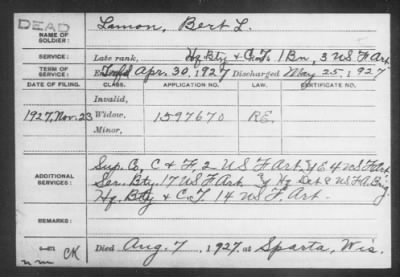 DEAD
NAME OF SOLDIER: Lamon, Bert L.
SERVICE: Late rank, Hq Bty & C. T. 1 Bn, 3 US F Art
TERM OF SERVICE: Enlisted Apr. 30, 1927 Discharged May 25, 1927
DATE OF FILING. CLASS. APPLICATION NO. LAW. CERTIFICATE NO.
Invalid,
1927, Nov. 23 Widow, 1597670 RE.
Minor,
ADDITIONAL SERVICES: Sup. Co, C & F, 2 US F Art. & E 4 US F Art
Ser. Bty. 17 US F Art. Hq Det 2 US F A. Brig
Hq. Bty & C. T. 14 US F. Art.
REMARKS:
Died Aug. 7, 1927. at Sparta, Wis.
CK
nm